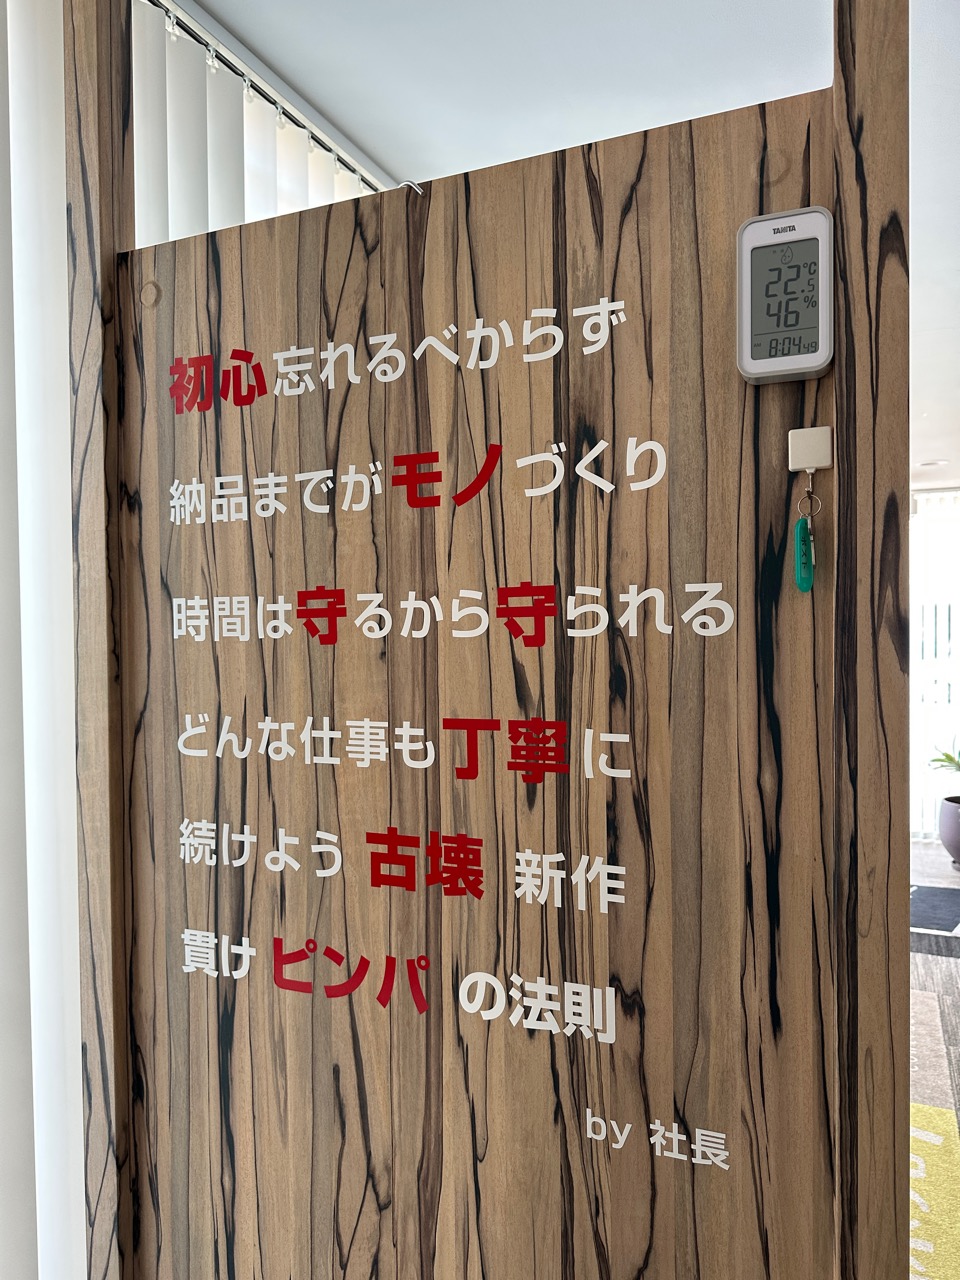 初心忘れるべからず
納品までがモノづくり
時間は守るから守られる
どんな仕事も丁寧に
続けよう 古壊 新作
貫け ピンパ の法則
by 社長
TANITA
22.5℃
46%
8:04 49
ポスト